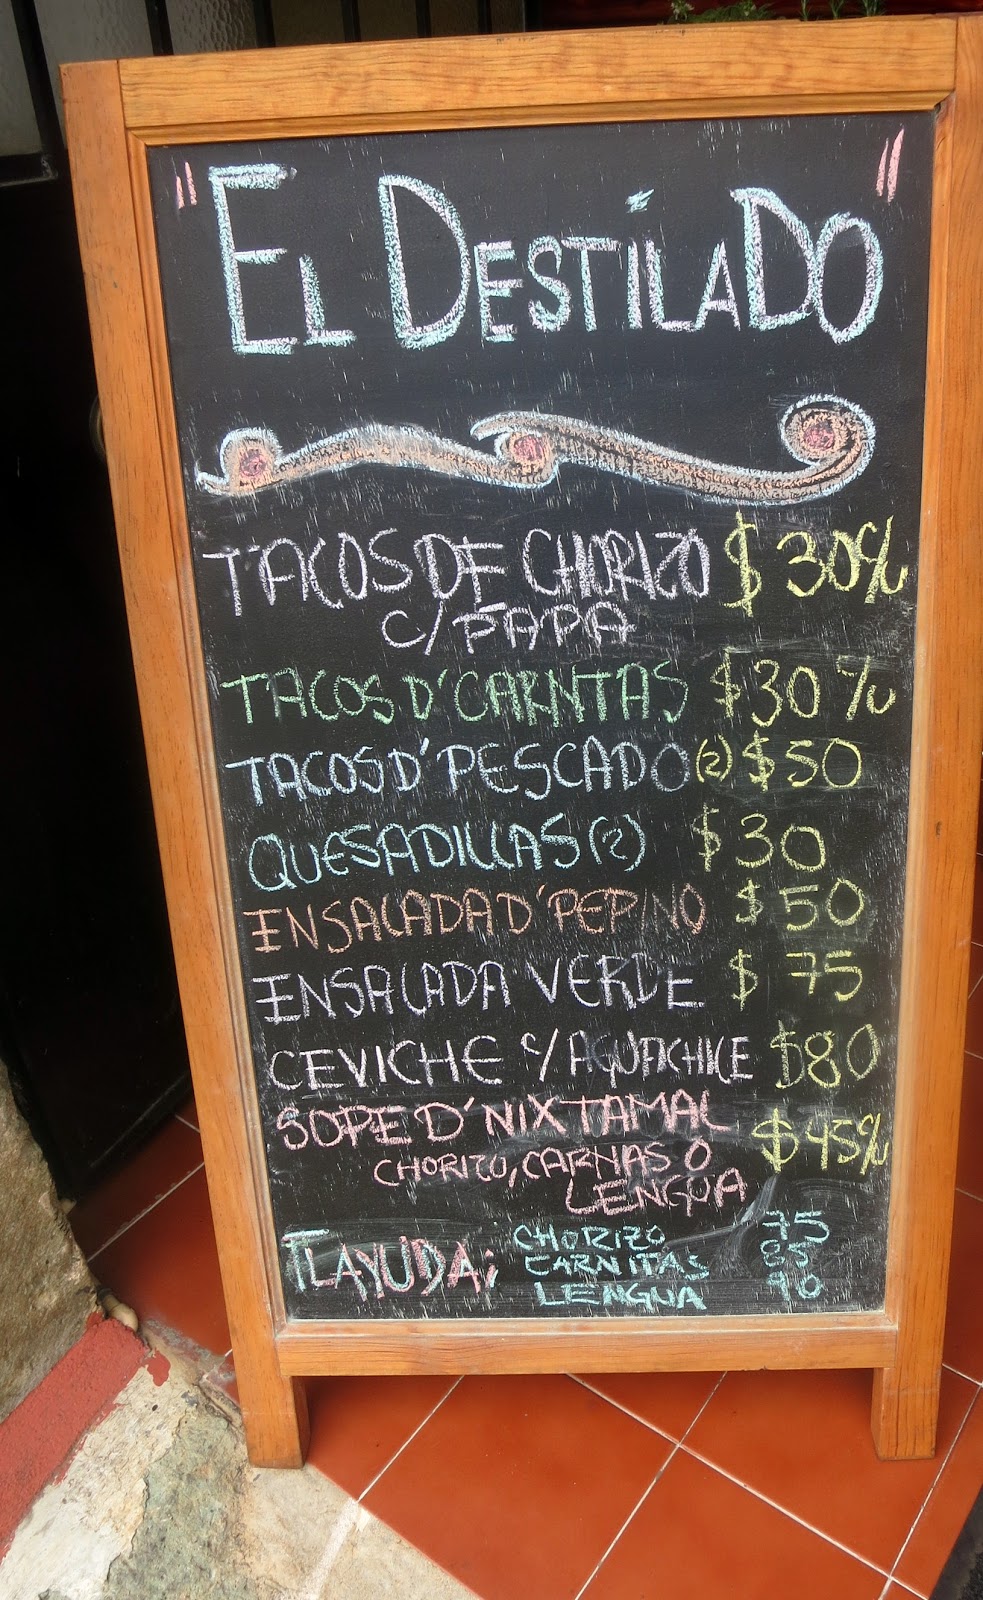 "EL DESTILADO"
TACOS DE CHORIZO $30 c/u
C/PAPA
TACOS D'CARNTAS $30 c/u
TACOS D'PESCADO (2) $50
QUESADILLAS (2) $30
ENSALADA D'PEPINO $50
ENSALADA VERDE $75
CEVICHE C/AGUACHILE $80
SOPE D'NIXTAMAL $45 c/u
CHORIZO, CARNAS O
LENGUA
TLAYUDA: CHORIZO 75
CARNITAS 85
LENGUA 90